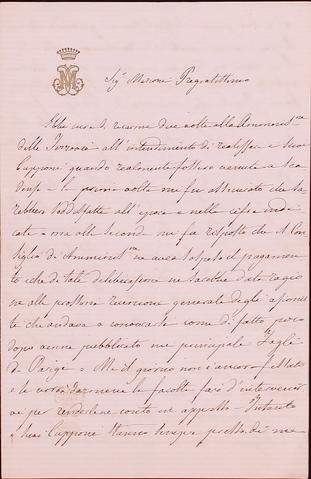 Sig.r Marconi Pregiatissimo
due volte alla Amministr.ne
delle Ferrovie all'intendimento di realizzare i suoi
Cupponi quando realmente fossero venuti a sca
denza - La prima volta mi fu assicurato che sa
rebbero soddisfatte all'epoca e nelle cifre indi
cate - ma alla seconda mi fu risposto che il Con
siglio di Amministr.ne aveva sospeso il pagamen
to e che di tale deliberazione ne sarebbe data ragio
ne alla prossima riunione generale degli azionis
ti che andava a convocarsi come di fatto poco
dopo venne pubblicato nei principali Fogli
di Parigi - Ma il giorno non è ancor fissato
e se vorrà darmene la facoltà farò d'intervenir
vi per rendergliene conto in appresso - Intanto
i suoi Cupponi stanno sempre presso di me